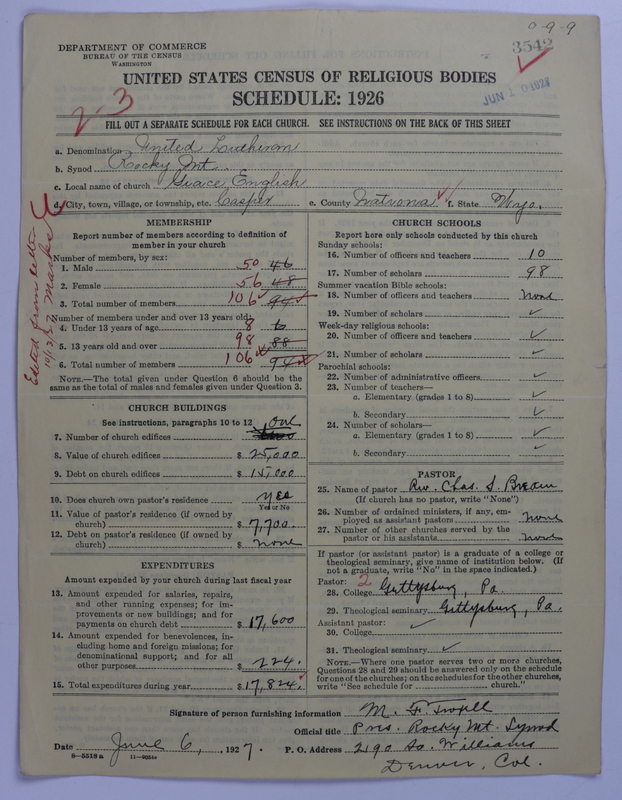 9-9-9
3542
DEPARTMENT OF COMMERCE
BUREAU OF THE CENSUS
WASHINGTON
UNITED STATES CENSUS OF RELIGIOUS BODIES
SCHEDULE: 1926
JUN 1 0 1927
2-3
FILL OUT A SEPARATE SCHEDULE FOR EACH CHURCH. SEE INSTRUCTIONS ON THE BACK OF THIS SHEET
a. Denomination United Lutheran
b. Synod Rocky Mt.
c. Local name of church Grace English
d. City, town, village, or township, etc. Casper e. County Natrona f. State Wyo.
Edited from letter
10/12/27
MEMBERSHIP
Report number of members according to definition of
member in your church
Number of members, by sex:
1. Male 50 46
2. Female 56 48
3. Total number of members 106 94
Number of members under and over 13 years old:
4. Under 13 years of age 8 6
5. 13 years old and over 98 88
6. Total number of members 106 94
NOTE.—The total given under Question 6 should be the
same as the total of males and females given under Question 3.
CHURCH BUILDINGS
See instructions, paragraphs 10 to 12 one
7. Number of church edifices
8. Value of church edifices $ 25,000
9. Debt on church edifices $ 15,000
10. Does church own pastor's residence yes
Yes or No
11. Value of pastor's residence (if owned by
church) $ 7,700.
12. Debt on pastor's residence (if owned by
church) $ none
EXPENDITURES
Amount expended by your church during last fiscal year
13. Amount expended for salaries, repairs,
and other running expenses; for im-
provements or new buildings; and for
payments on church debt $ 17,600
14. Amount expended for benevolences, in-
cluding home and foreign missions; for
denominational support; and for all
other purposes $ 224.
15. Total expenditures during year $ 17,824.
CHURCH SCHOOLS
Report here only schools conducted by this church
Sunday schools:
16. Number of officers and teachers 10
17. Number of scholars 98
Summer vacation Bible schools:
18. Number of officers and teachers none
19. Number of scholars ✓
Week-day religious schools:
20. Number of officers and teachers ✓
21. Number of scholars ✓
Parochial schools:
22. Number of administrative officers ✓
23. Number of teachers—
a. Elementary (grades 1 to 8) ✓
b. Secondary ✓
24. Number of scholars—
a. Elementary (grades 1 to 8) ✓
b. Secondary ✓
PASTOR
25. Name of pastor Rev. Chas. S. Bream
(If church has no pastor, write "None")
26. Number of ordained ministers, if any, em-
ployed as assistant pastors none
27. Number of other churches served by the
pastor or his assistants none
If pastor (or assistant pastor) is a graduate of a college or
theological seminary, give name of institution below. (If
not a graduate, write "No" in the space indicated.)
Pastor: 2
28. College Gettysburg, Pa.
29. Theological seminary Gettysburg, Pa.
Assistant pastor:
30. College ✓
31. Theological seminary ✓
NOTE.—Where one pastor serves two or more churches,
Questions 28 and 29 should be answered only on the schedule
for one of the churches; on the schedules for the other churches,
write "See schedule for church."
Signature of person furnishing information M. F.
Official title Pres. Rocky Mt. Synod
Date June 6, 1927. P. O. Address 2190 So. Williams
Denver, Col.
8-5518a 11-9054